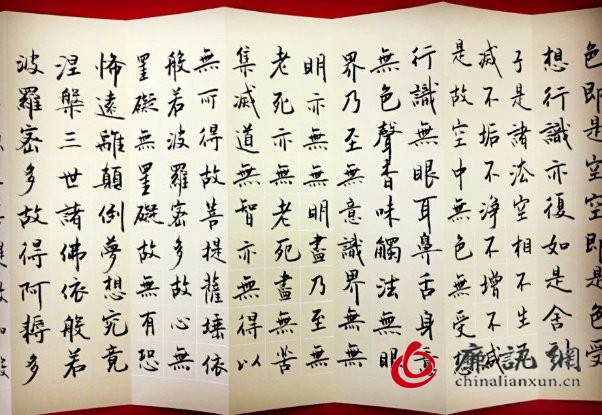 色即是空空即是色受
想行識亦復如是舍利
子是諸法空相不生不
滅不垢不淨不增不減
是故空中無色無受想
行識無眼耳鼻舌身意
無色聲香味觸法無眼
界乃至無意識界無無
明亦無無明盡乃至無
老死亦無老死盡無苦
集滅道無智亦無得以
無所得故菩提薩埵依
般若波羅密多故心無
罣礙無罣礙故無有恐
怖遠離顛倒夢想究竟
涅槃三世諸佛依般若
波羅密多故得阿耨多
廉訊網
chinalianxun.cn